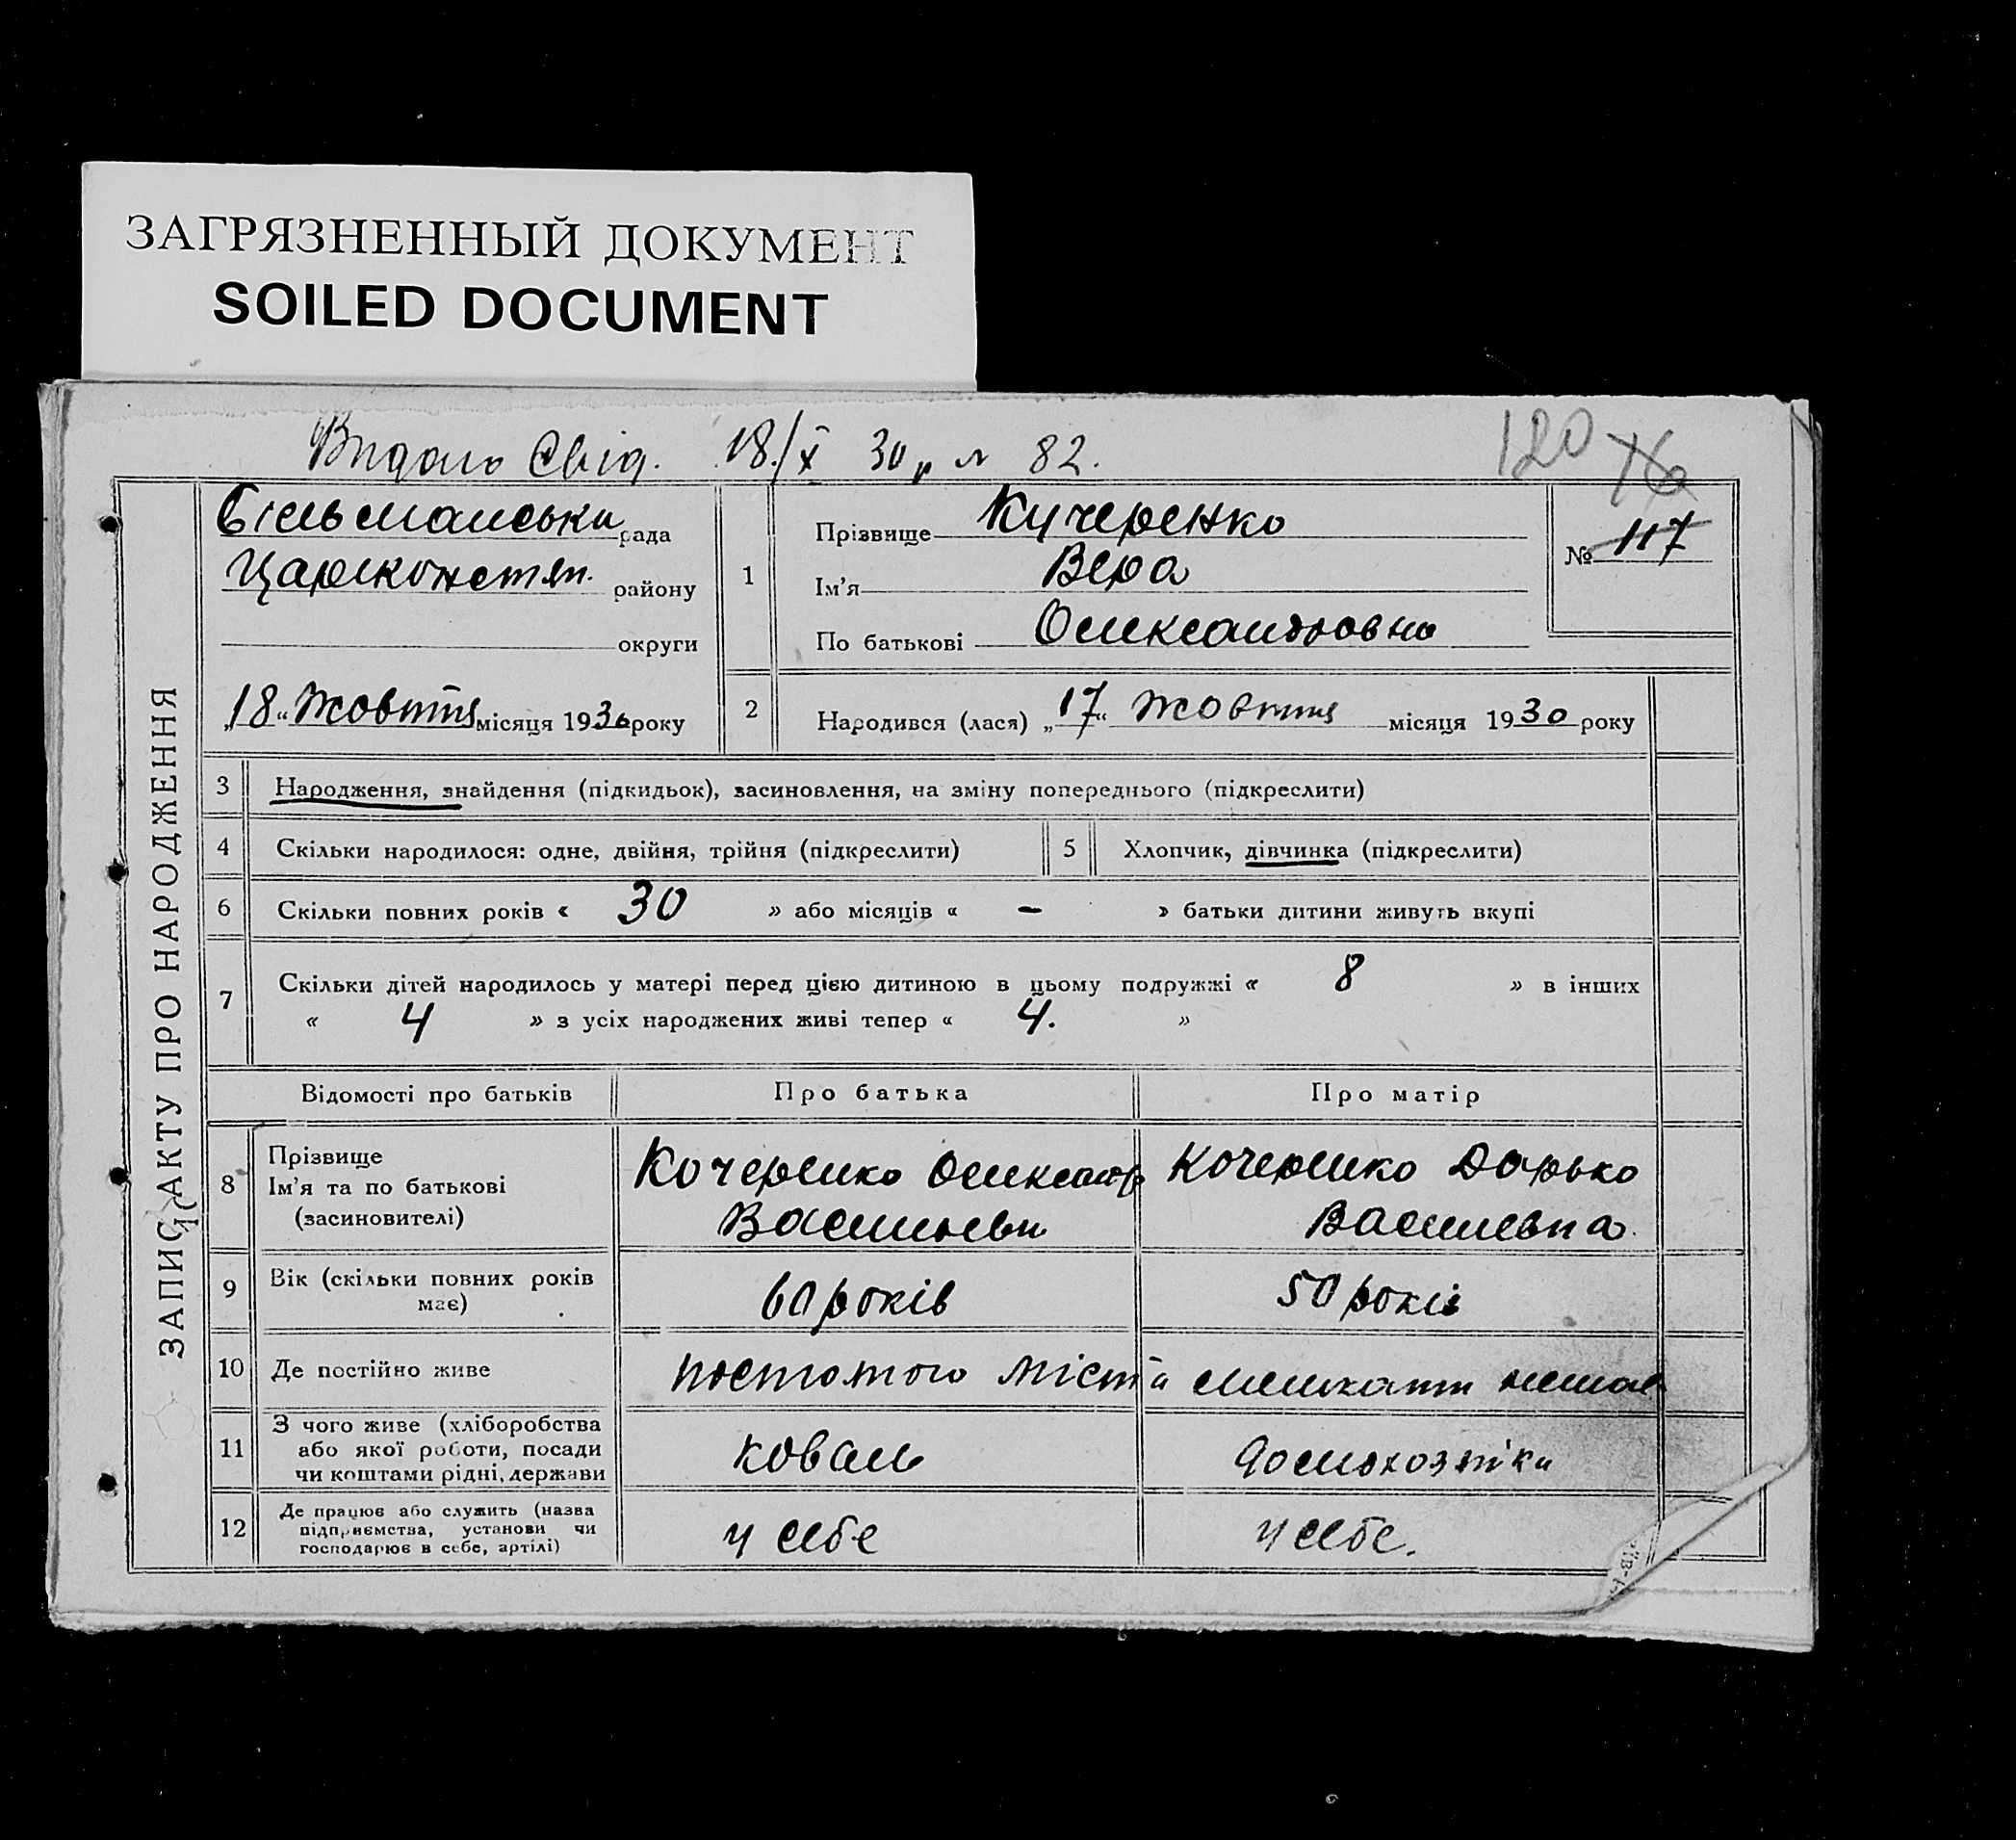 ЗАГРЯЗНЕННЫЙ ДОКУМЕНТ
SOILED DOCUMENT
Видано Свід. 18/X 30 р № 82.
120
ЗАПИС АКТУ ПРО НАРОДЖЕННЯ
Більманська рада
Царекконстян. району
округи
„18“ Жовтня місяця 1930 року
1
Прізвище Кучеренко
Ім'я Вера
По батькові Олександровна
№ 117
2
Народився (лася) „17“ Жовтня місяця 1930 року
3 Народження, знайдення (підкидьок), засиновлення, на зміну попереднього (підкреслити)
4 Скільки народилося: одне, двійня, трійня (підкреслити) 5 Хлопчик, дівчинка (підкреслити)
6 Скільки повних років « 30 » або місяців « – » батьки дитини живуть вкупі
7 Скільки дітей народилось у матері перед цією дитиною в цьому подружжі « 8 » в інших
« 4 » з усіх народжених живі тепер « 4. »
Відомості про батьків Про батька Про матір
8 Прізвище
Ім'я та по батькові
(засиновителі)
Кочеренко Олександр
Васильеви
Кочеренко Дарько
Василевна
9 Вік (скільки повних років
має)
60 років 50 років
10 Де постійно живе
постоятого міста мешкати немае
11 З чого живе (хліборобства
або якої роботи, посади
чи коштами рідні, держави
коваль домохозяіка
12 Де працює або служить (назва
підприємства, установи чи
господарює в себе, артілі)
у себе у себе.